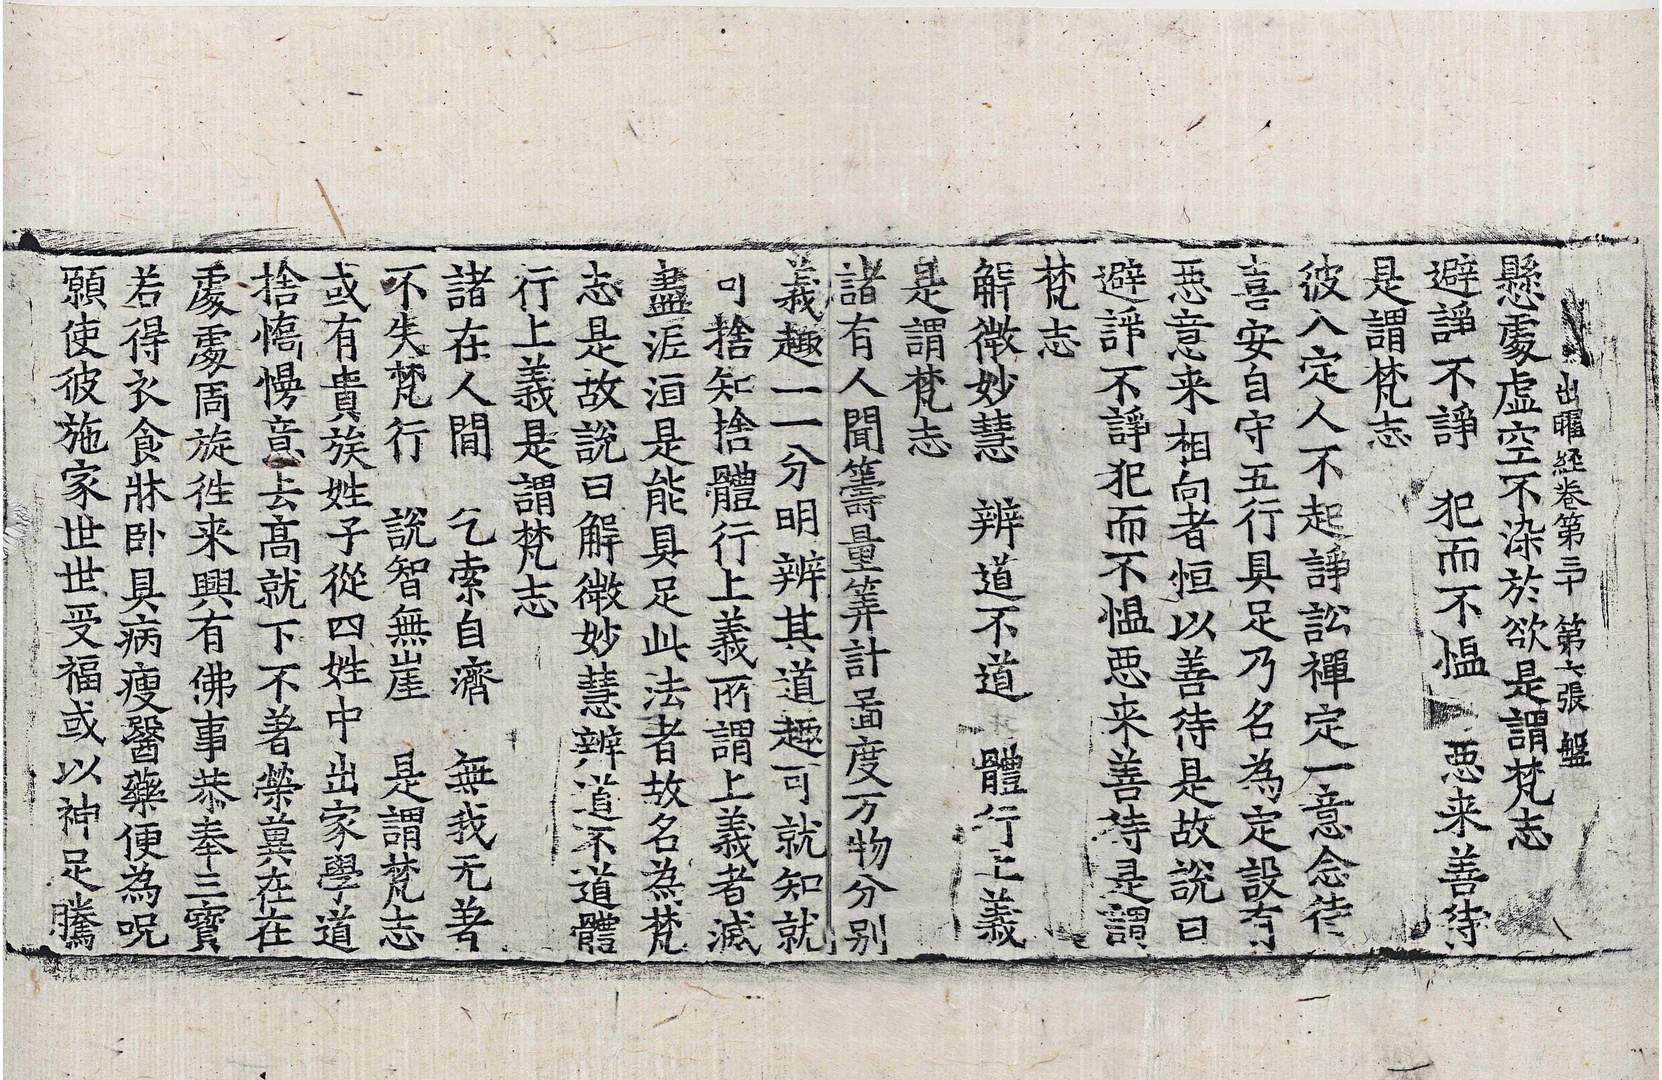 出曜經卷第三十 第六張 盤
懸處虛空不染於欲是謂梵志
避諍不諍 犯而不愠 惡来善待
是謂梵志
彼入定人不起諍訟禪定一意念待
喜安自守五行具足乃名為定設有
惡意来相向者恒以善待是故說曰
避諍不諍犯而不愠惡来善待是謂
梵志
解微妙慧 辨道不道 體行上義
是謂梵志
諸有人間籌量筭計啚度万物分别
義趣一一分明辨其道趣可就知就
可捨知捨體行上義所謂上義者滅
盡泥洹是能具足此法者故名為梵
志是故說曰解微妙慧辨道不道體
行上義是謂梵志
諸在人間 乞索自濟 無我无著
不失梵行 說智無崖 是謂梵志
或有貴族姓子從四姓中出家學道
捨憍慢意去高就下不著榮冀在在
處處周旋往来興有佛事恭奉三寶
若得衣食牀卧具病瘦醫藥便為呪
願使彼施家世世受福或以神足騰